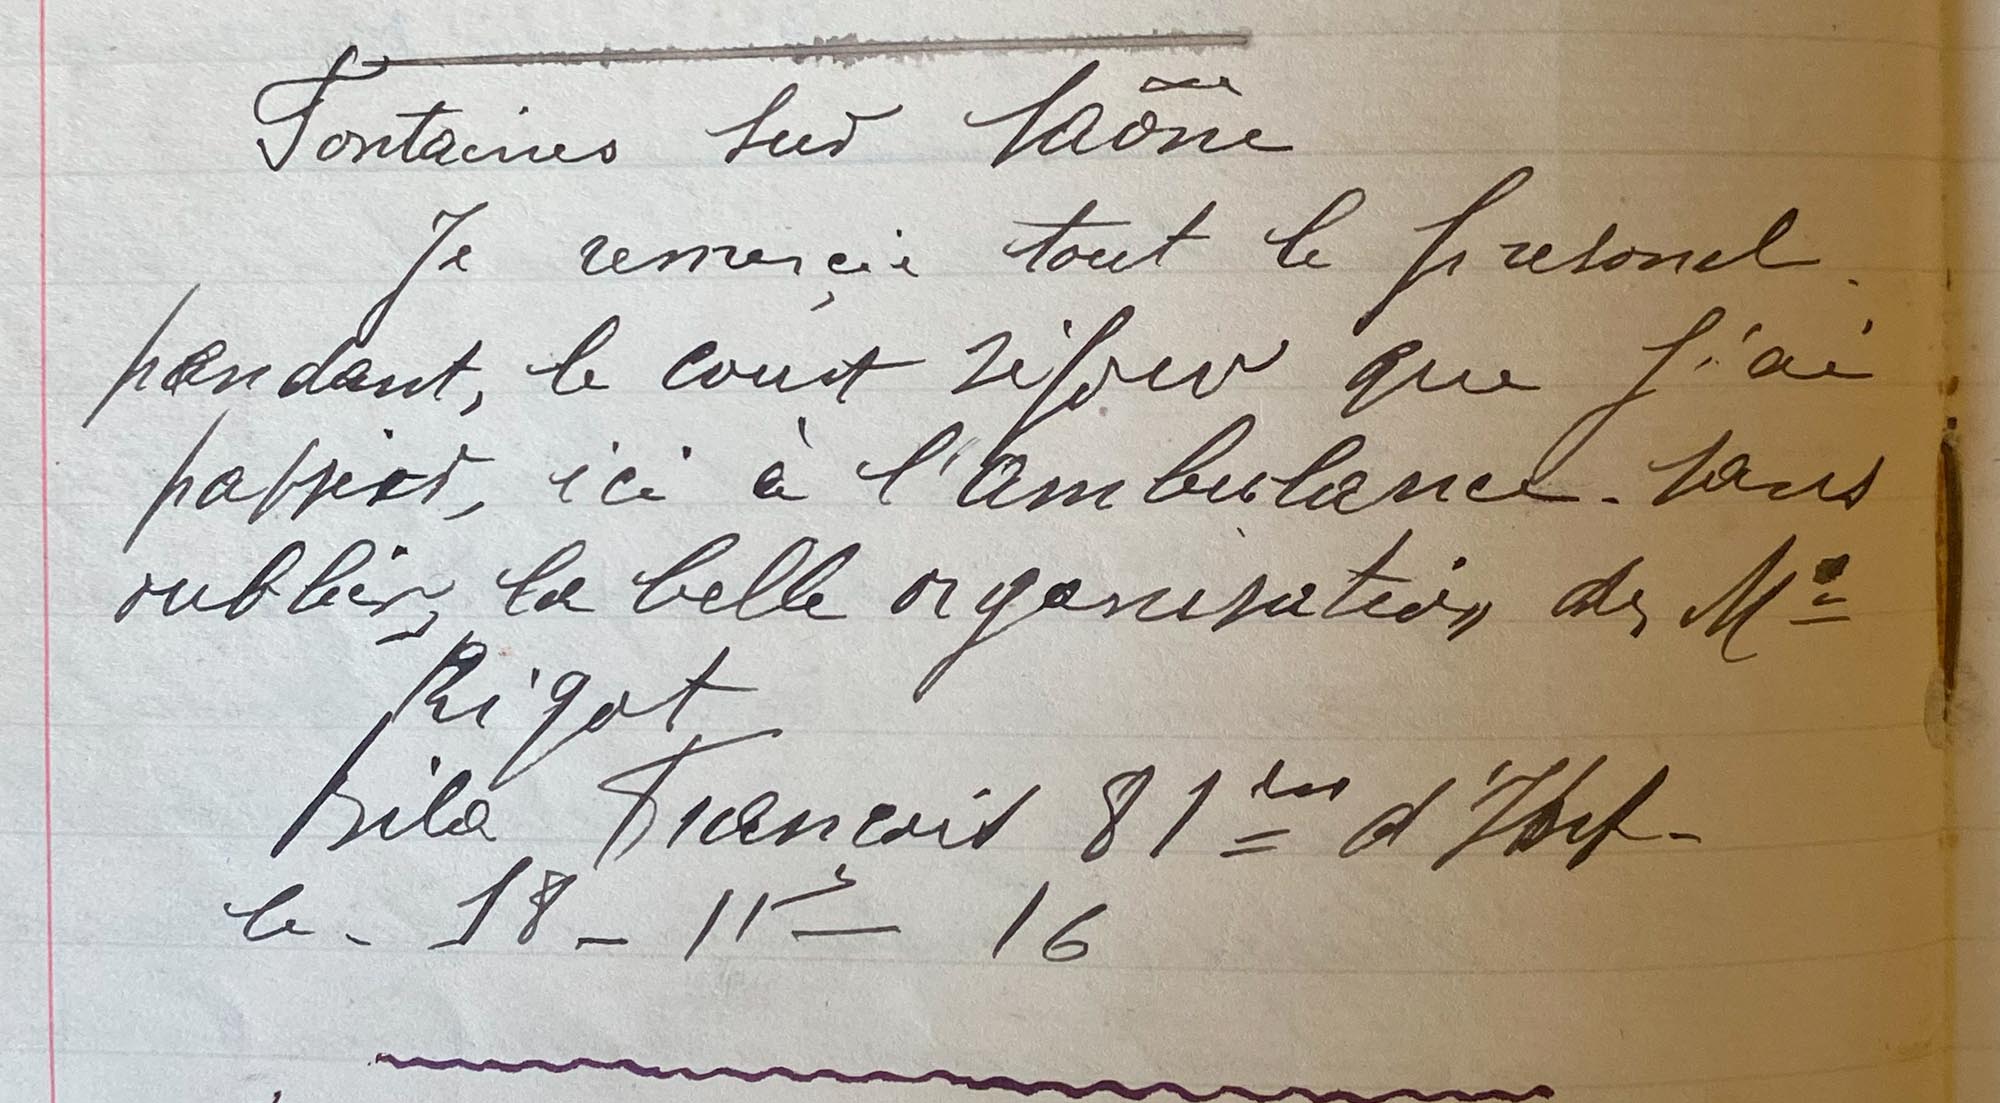 Fontaines sur Saône
Je remerçie tout le presonel
pendant, le court séjour que j'ai
passier, ici à l'ambulance. sans
oublier, la belle organisation, de, Mr
Rigot
Bila François 81ies d'Inf-
le - 18 - 11 - 16